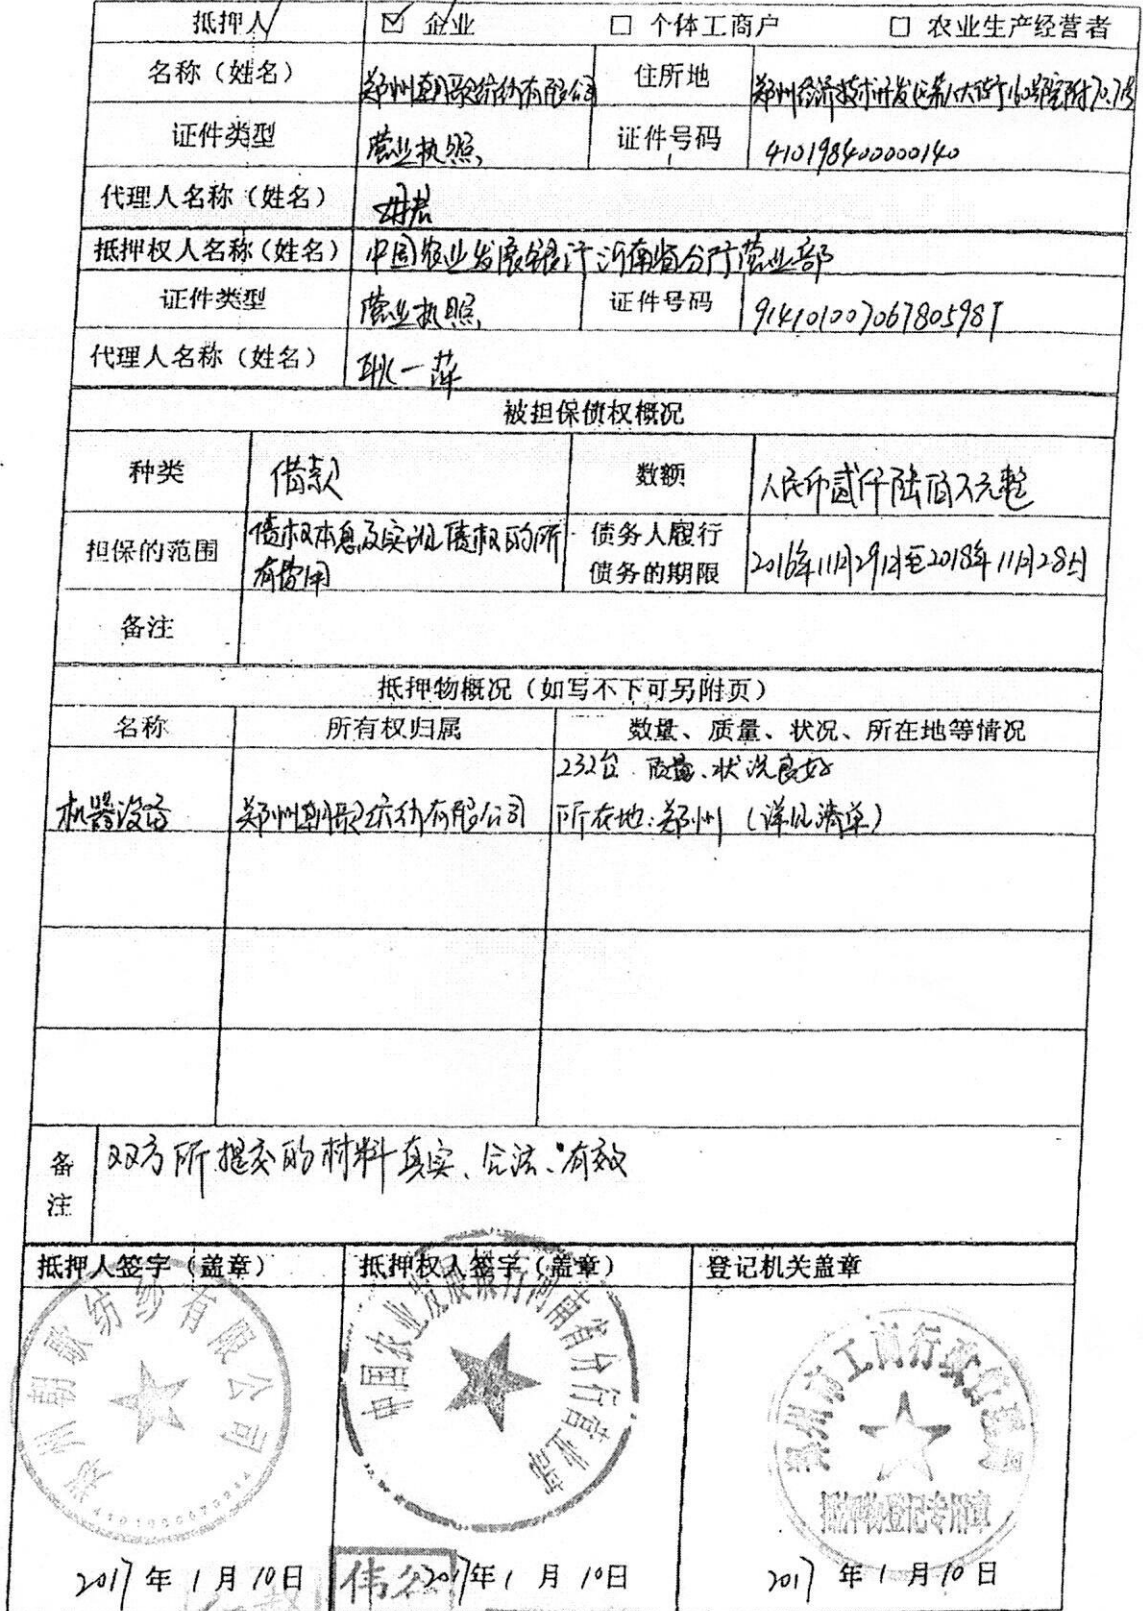 抵押人 ☑ 企业 □ 个体工商户 □ 农业生产经营者
名称（姓名） 郑州朝歌纺纱有限公司 住所地 郑州经济技术开发区第八大街160号院附70.71号
证件类型 营业执照 证件号码 410198400000140
代理人名称（姓名）
抵押权人名称（姓名） 中国农业发展银行河南省分行营业部
证件类型 营业执照 证件号码 91410100706780598T
代理人名称（姓名） 耿一萍
被担保债权概况
种类 借款 数额 人民币贰仟陆佰万元整
担保的范围 债权本息及实现债权的所有费用 债务人履行债务的期限 2016年11月29日至2018年11月28日
备注
抵押物概况（如写不下可另附页）
名称 所有权归属 数量、质量、状况、所在地等情况
232台 质量、状况良好
机器设备 郑州朝歌纺纱有限公司 所在地：郑州（详见清单）
备注 双方所提交的材料真实、合法、有效
抵押人签字（盖章） 抵押权人签字（盖章） 登记机关盖章
郑州朝歌纺纱有限公司
中国农业发展银行河南省分行营业部
郑州市工商行政管理局
抵押物登记专用章
2017年1月10日 2017年1月10日 2017年1月10日